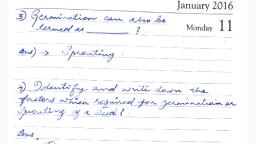 January 2016
Monday 11
3) Germination can also be
termed as ________ ?
Ans) → Sprouting.
4) Identify and write down the
factors which required for germination or
Sprouting of a seed?
Ans,